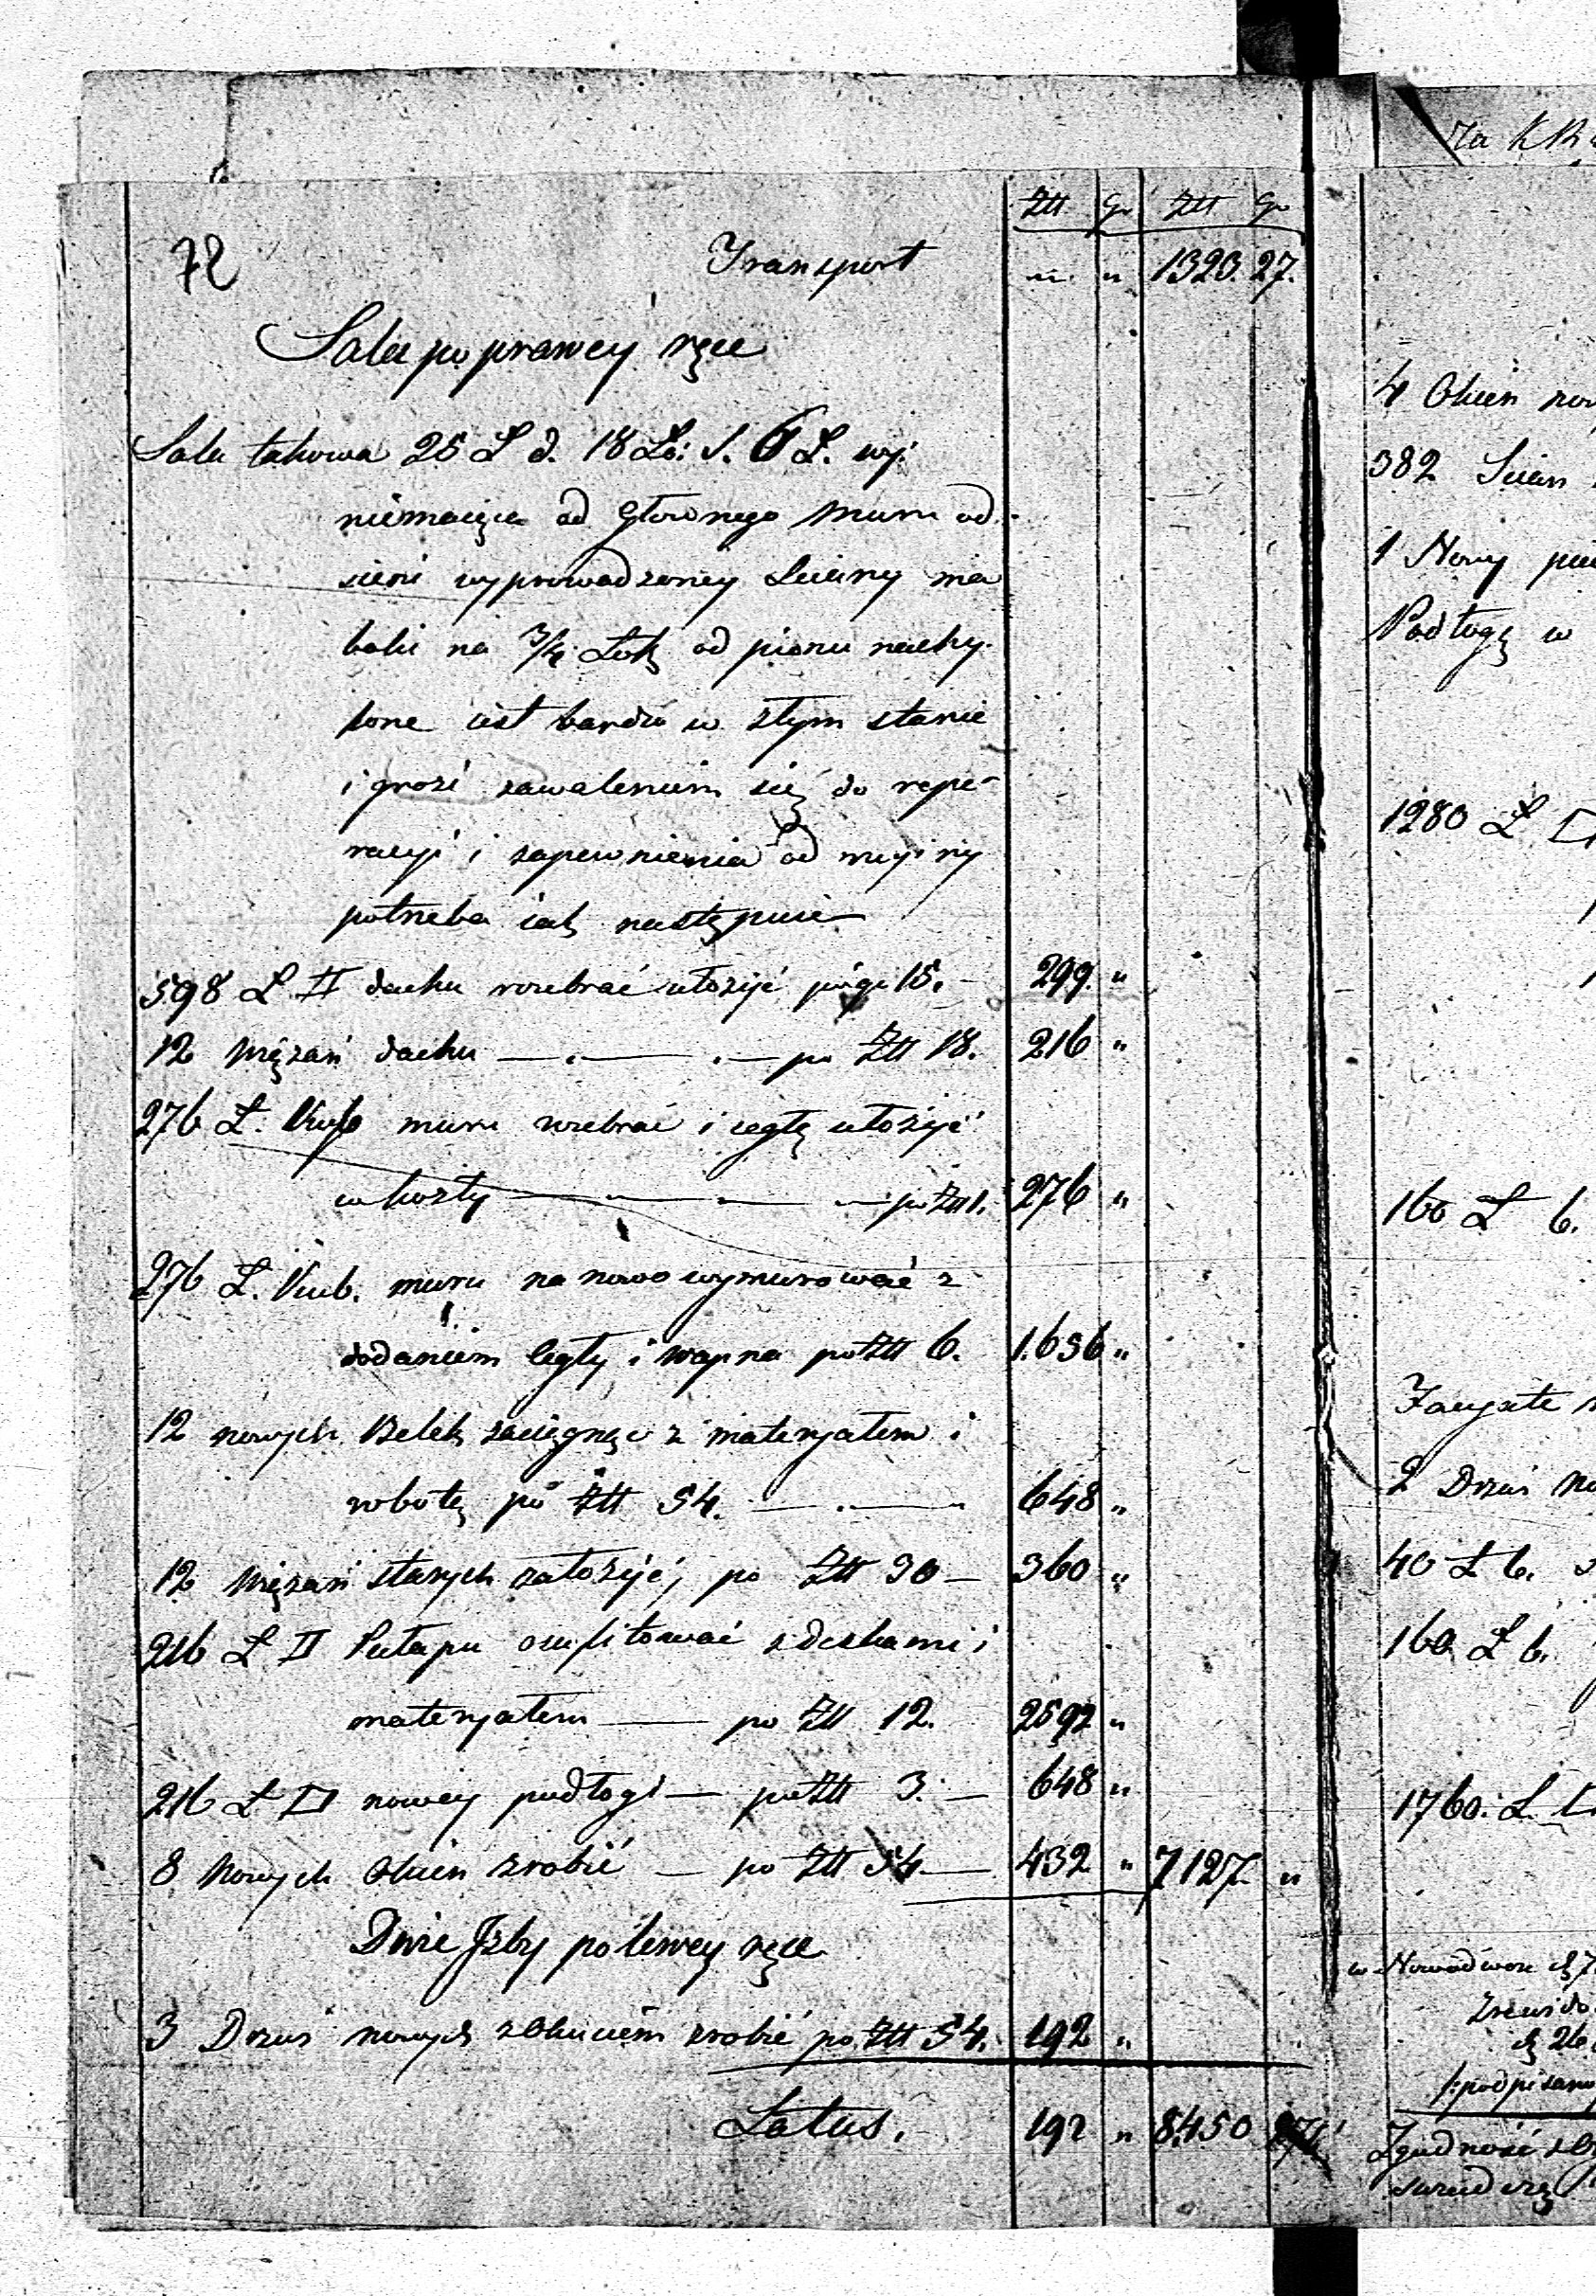 Złt Gr Złt Gr
72 Transport " " 1323. 27.
Sala po prawey ręce
Sala takowa 25 Ł d. 18 Ło: S. 6 Ł. wy.
niemaiąca od głownego muru od
sieni wyprowadzoney Sciany ma
boki na 3/4 Łok od pionu nachy-
lone iest bardzo w złym stanie
i grozi zawaleniem się do repe-
racyi i zapewnienia od ruyiny
potrzeba iak następuie
598 Ł □ dachu rozebrać ułożyć po gr 15. — 299. "
12 Wiązań dachu — . — . — po Złt 18. 216 "
276 Ł. Kub muru rozebrać i cegłę ułożyć
w kozły — — — po Złt 1. 276 "
276 Ł. Kub. muru na nowo wymurować z
dodaniem Cegły i wapna po Złt 6. 1.656 "
12 nowych Belek zaciągnąć z materyałem i
robotą po Złt 54. — . — 648 "
12 Wiązań starych założyć, po Złt 30 — 360 "
216 Ł □ Pułapu osufitować z deskami i
materyałem — po Złt 12. 2592 "
216 Ł □ nowey podłogi — po Złt 3. — 648 "
8 Nowych Okien zrobić — po Złt 54. — 432 " 7127. "
Dwie Jzby po lewey ręce
3 Drzwi nowych z Okuciem zrobić po Złt 54. 192 "
Latus. 192 " 8,450 27
Za
4 Okien now
382 Scian
1 Nowy pie
Podłogę w
1280 Ł □
160 Ł b.
Facyate
2 Drzwi No
40 Ł b.
160 Ł b.
1760. Ł. □
w Nowod
Zrewido
d 26
/:podpisano
Zgodność